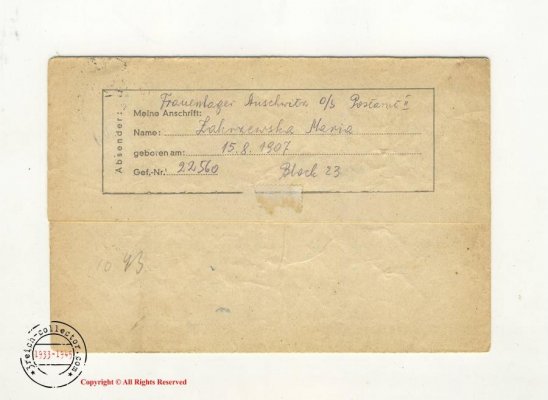 Absender:
Frauenlager Auschwitz O/S Postamt II
Meine Anschrift:
Name: Zakrzewska Maria
geboren am: 15.8.1907
Gef.-Nr. 22560 Block 23
93
3reich-collector.com
1933-1945
Copyright © All Rights Reserved